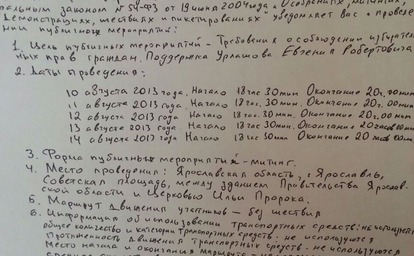 ральным законом № 54-ФЗ от 19 июня 2004 года "О собраниях, митингах,
демонстрациях, шествиях и пикетированиях" уведомляет Вас о проведе-
нии публичного мероприятия:
1. Цель публичных мероприятий - Требования о соблюдении избиратель
ных прав граждан. Поддержка Урлашова Евгения Робертовича
2. Даты проведения:
10 августа 2013 года. Начало 18 час. 30 мин. Окончание 20 ч. 00 мин
11 августа 2013 года. Начало 18 час 30 мин. Окончание 20 ч. 00 мин
12 августа 2013 года Начало 18 час 30 мин. Окончание 20 ч. 00 мин
13 августа 2013 года Начало 18 час 30 мин. Окончание 20 час 00 мин
14 августа 2013 года Начало 18 час 30 мин. Окончание 20 час 00 мин
3. Форма публичных мероприятий - митинг.
4. Место проведения: Ярославская область, г. Ярославль,
Советская площадь, между зданием Правительства Ярослав-
ской области и Церковью Ильи Пророка.
5. Маршрут движения участников - без шествия
6. Информация об использовании транспортных средств: не используются
общее количество и категории транспортных средств - не используются
Протяженность движения транспортных средств - не используются
Место начала и окончания маршрута - не используются